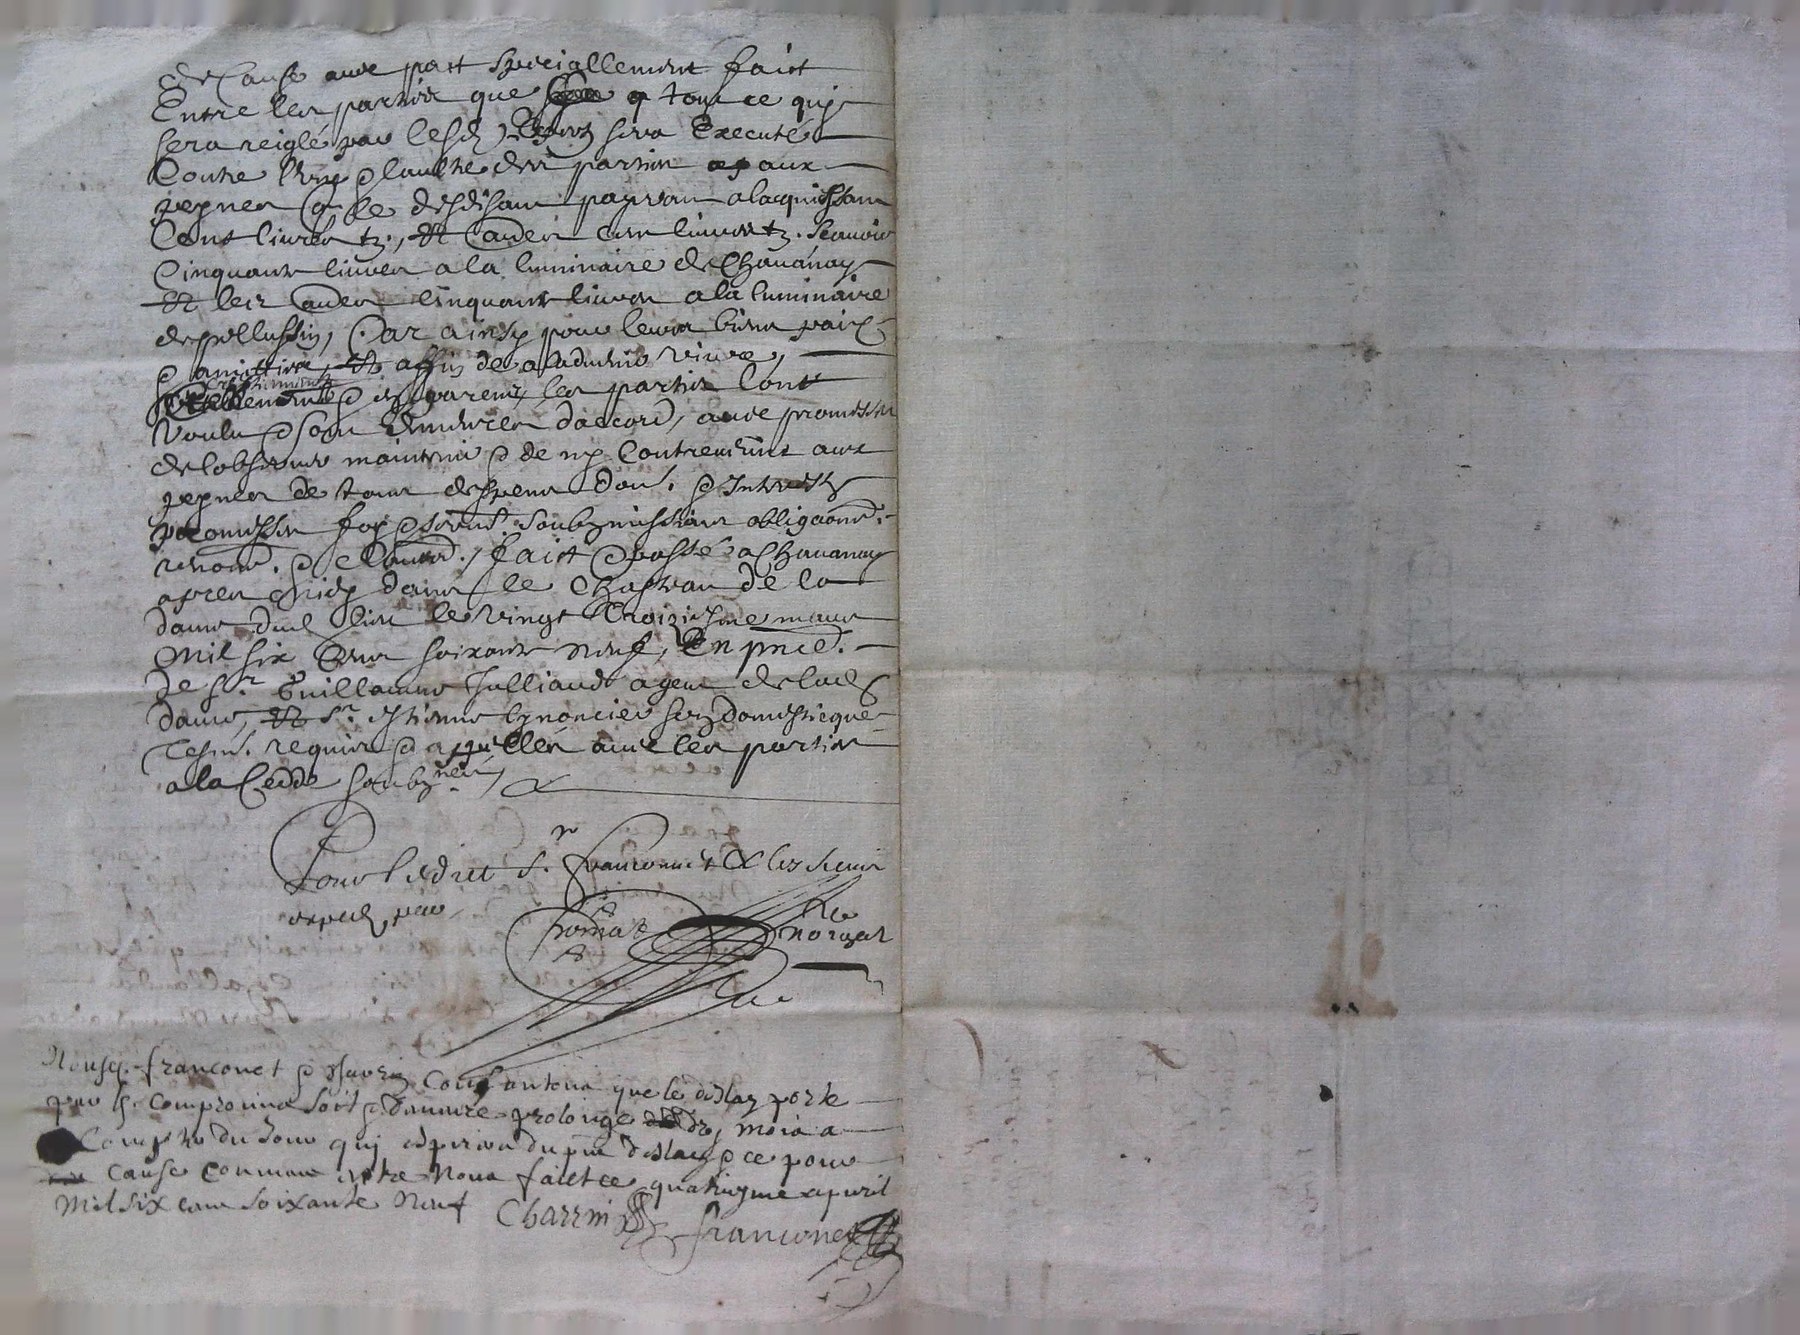 de Cause avec pact speciallement faict
Entre les parties que tout ce quy
sera reiglé par lesd. sera Executé
Contre l'une & l'aultre des parties aux
peynes q le desdisant payera a lacquiessant
Cent livres tz., Et Cent livres tz. scavoir
Cinquante livres a la luminaire de Chavanay
Et les au<sup></sup>tres Cinquante livres a la luminaire
de pellussin, Car ainsy pour leur bien paix
& amittie, Et affin de a ladvenir vivre,
Crestiennement & en parens les parties l'ont
Voulu & sont demeurées daccord, avec promesse
de lobserver maintenir & de ny Contrevenir aux
peynes de tous despens dom. & Interestz
promesse foy & serm. soubzmissions obligaons.
renon. & Clauses./ faict & passé a Chavanay
apres midy dans le Chasteau de la
dame dud. lieu le vingt troiziesme mars
Mil six Cens soixante neuf, En pnce.
de Sr. Guillaume Julliand agent de lad.
dame, Et Sr. Estienne son domesticque
Tesm. requis & appellés avec les parties
a la Cedde soubznés,
Pour ledict Sr. franconnet & les siens
exped. par
No royal
Nous franconet & Charrin Consantons que le dellay porté
par le Compromis soit & demeure prolongé de mois a
Compter du Jour qui expirera du pnt dellay & ce pour
Cause Commune entre Nous faict ce quatriyme apvril
Mil six cens soixante Neuf Charrin
franconet